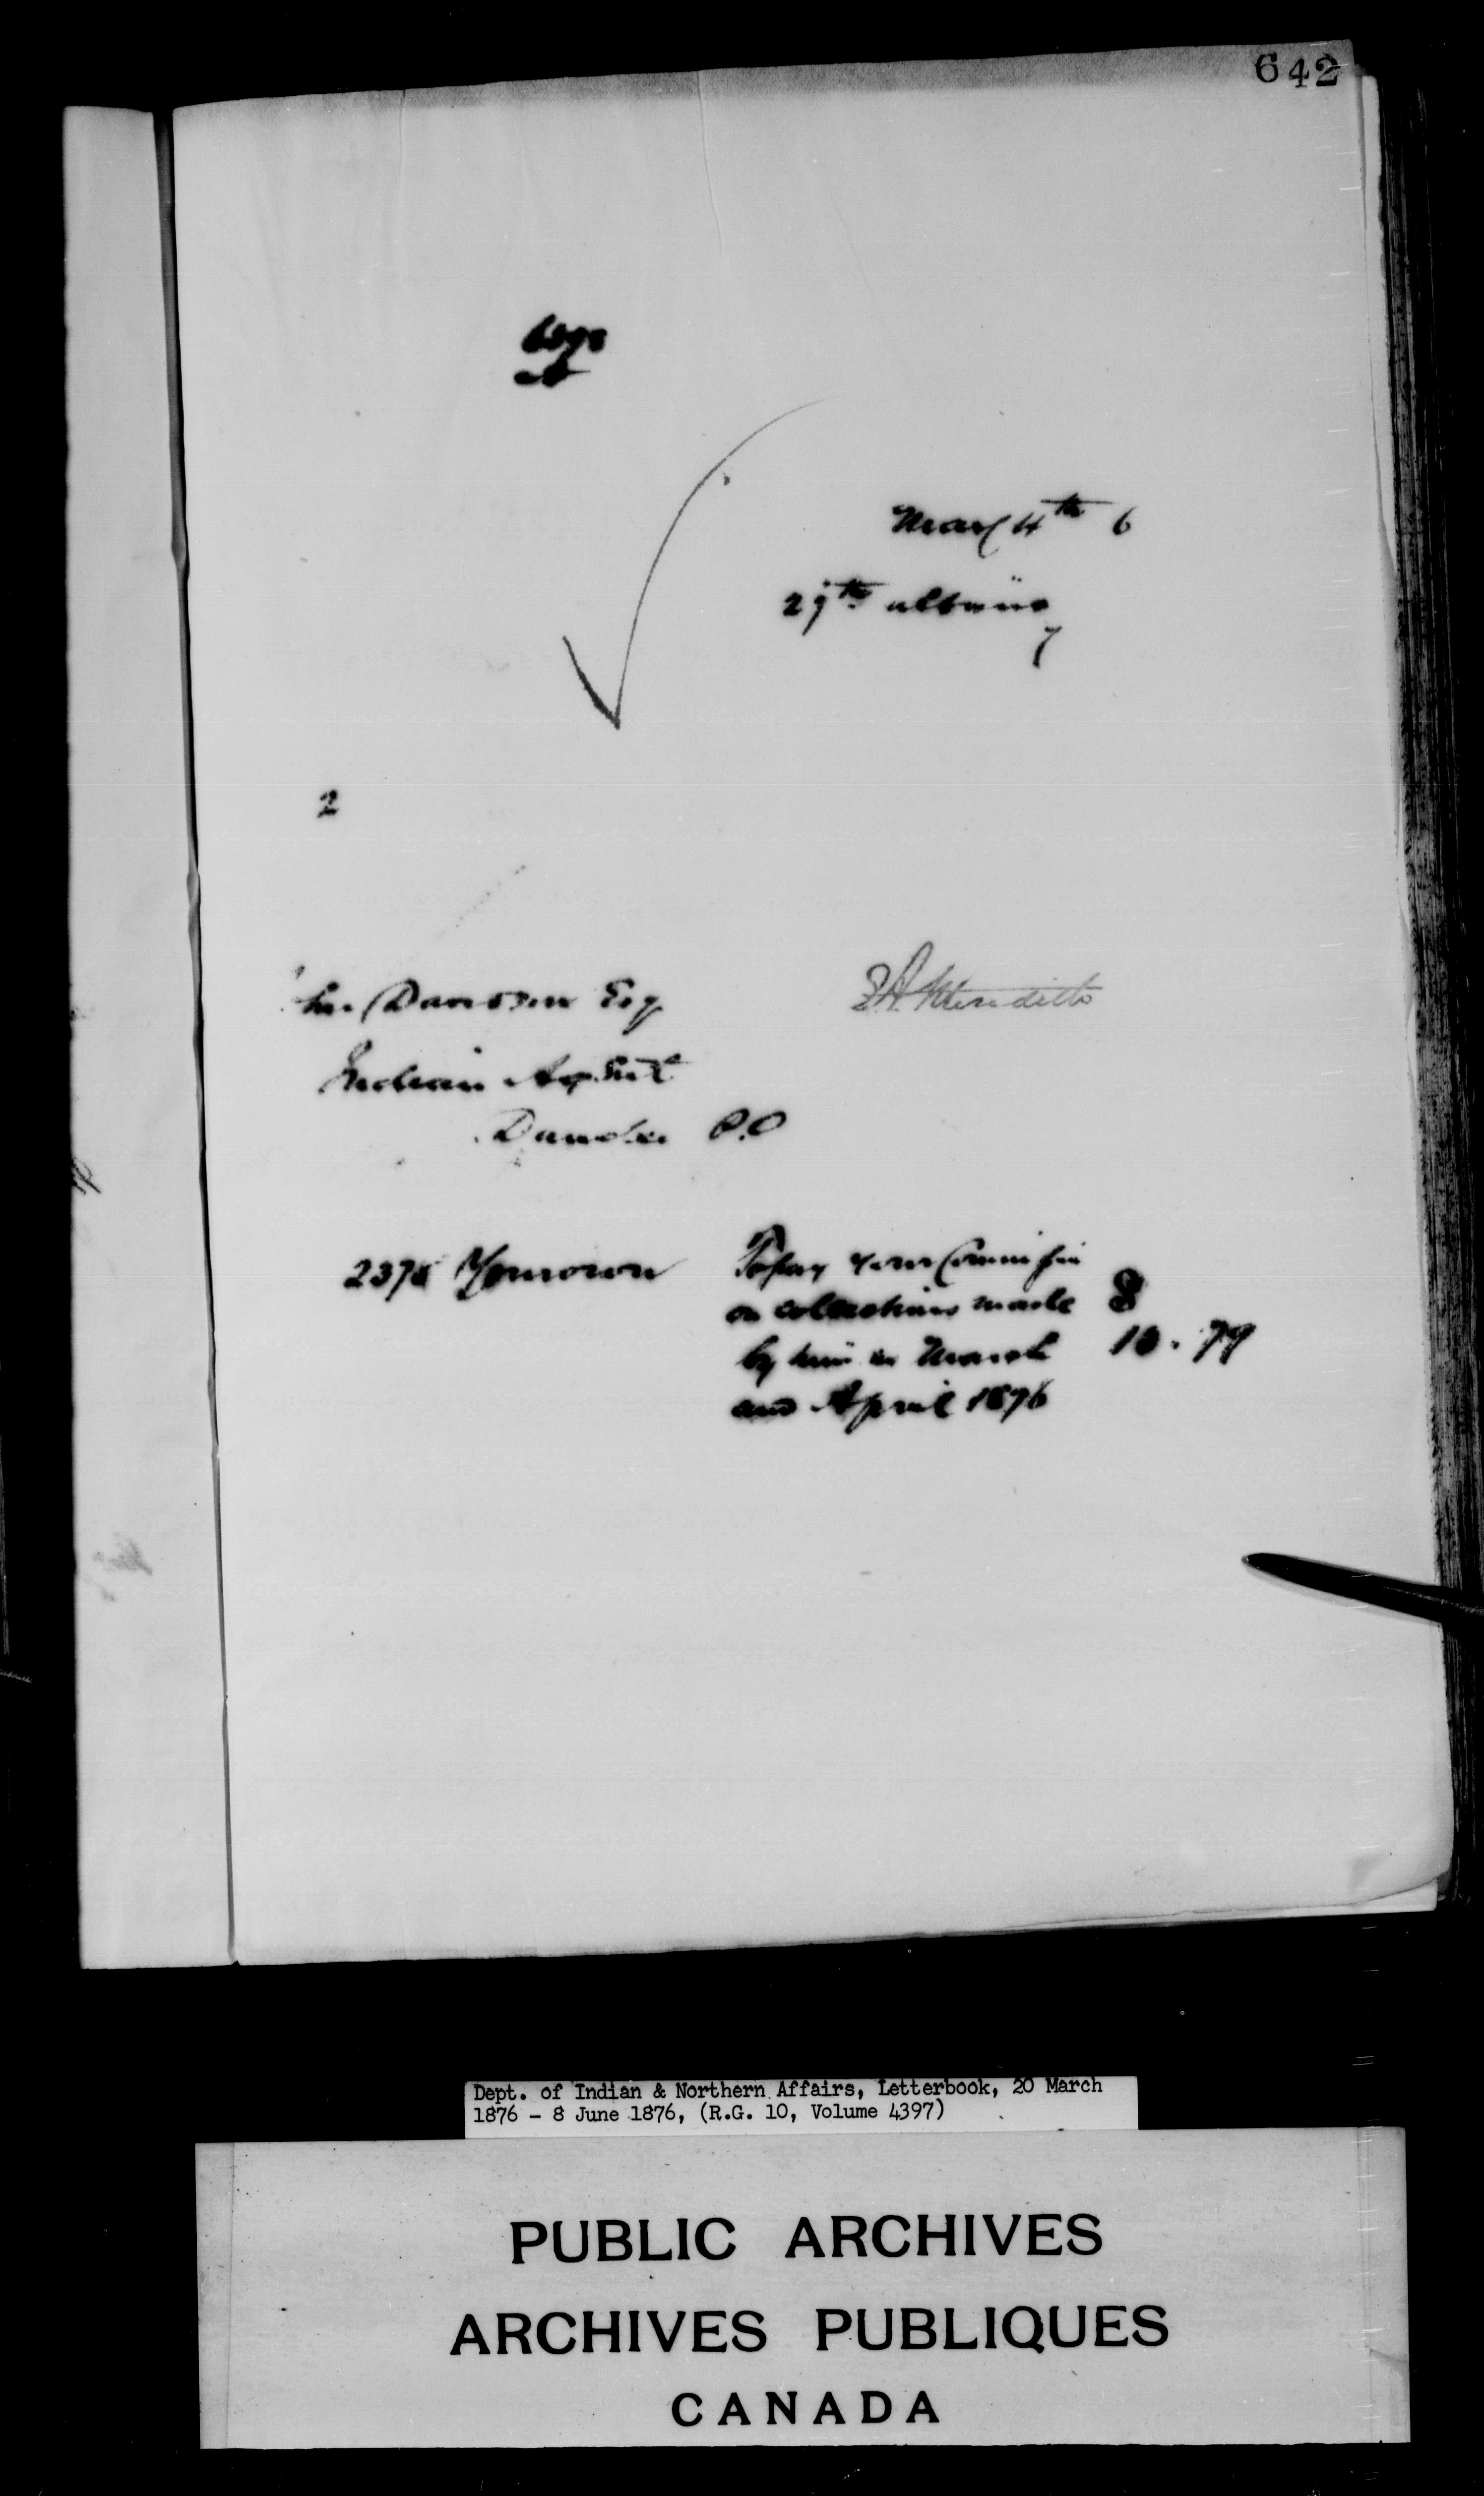 642
May 4th 6
29th ultimo
2
Jno Davidson Esq
Indian Agent
Dundee P.O
E A Meredith
2378 Yourown To pay your Commission
on collections made $
by him in March 10.79
and April 1876
Dept. of Indian & Northern Affairs, Letterbook, 20 March
1876 - 8 June 1876, (R.G. 10, Volume 4397)
PUBLIC ARCHIVES
ARCHIVES PUBLIQUES
CANADA